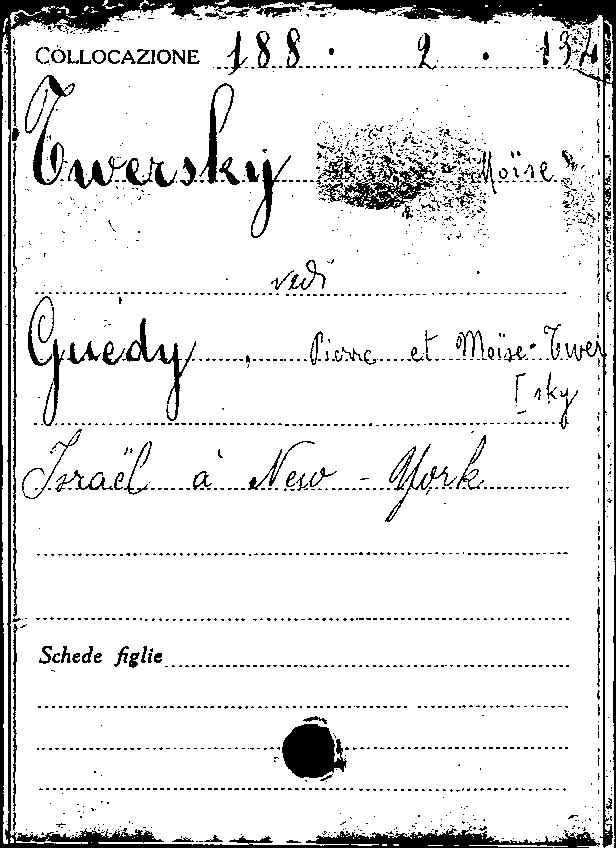 COLLOCAZIONE 188 . 2 . 134
Twersky Moïse
vedi
Guédy, Pierre et Moïse-Twer
[sky
Israël à New-York
Schede figlie